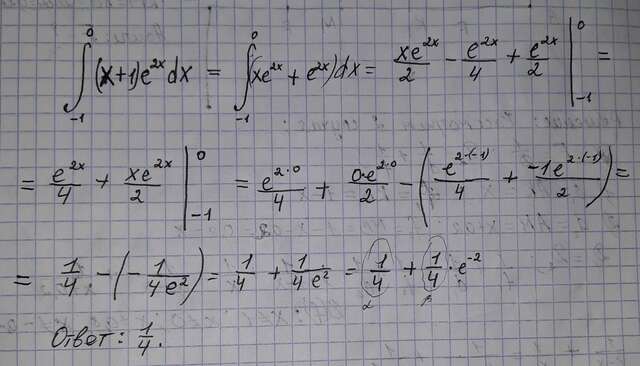 ∫₋₁⁰ (x+1)e²ˣdx = ∫₋₁⁰ (xe²ˣ + e²ˣ)dx = xe²ˣ/2 − e²ˣ/4 + e²ˣ/2 |₋₁⁰ =
= e²ˣ/4 + xe²ˣ/2 |₋₁⁰ = e^(2·0)/4 + 0·e^(2·0)/2 − (e^(2·(−1))/4 + −1e^(2·(−1))/2) =
= 1/4 − (−1/(4e²)) = 1/4 + 1/(4e²) = 1/4 + 1/4 · e⁻²
α β
Ответ: 1/4.